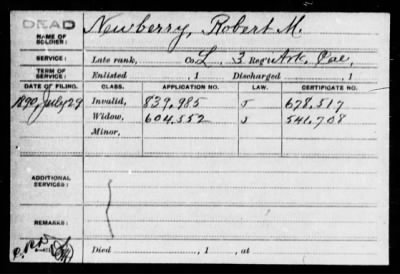 DEAD
NAME OF SOLDIER: Newberry, Robert M.
SERVICE: Late rank, Co. L, 3 Reg't Ark. Cav.
TERM OF SERVICE: Enlisted , 1 Discharged , 1
DATE OF FILING. CLASS. APPLICATION NO. LAW. CERTIFICATE NO.
1890, July 29 Invalid, 839.985 J 678.517
Widow, 604.552 J 541.708
Minor,
ADDITIONAL SERVICES:
REMARKS:
Died , 1 , at